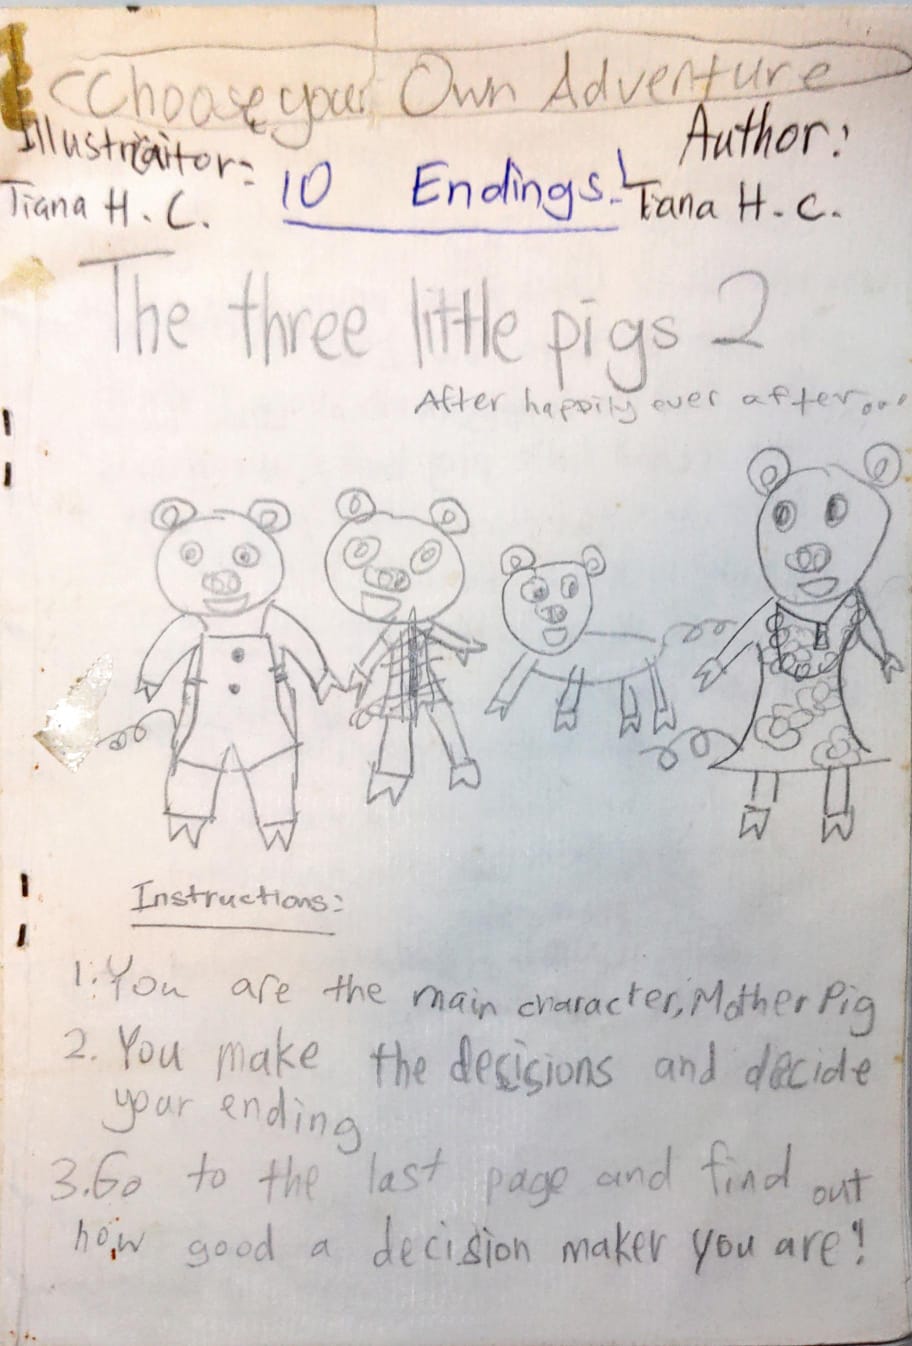 Choose your Own Adventure
Illustraitor:
Tiana H. C.
10 Endings!
Author:
Tiana H. C.
The three little pigs 2
After happily ever after...
Instructions:
1. You are the main character, Mother Pig
2. You make the decisions and decide
your ending
3. Go to the last page and find out
how good a decision maker you are!